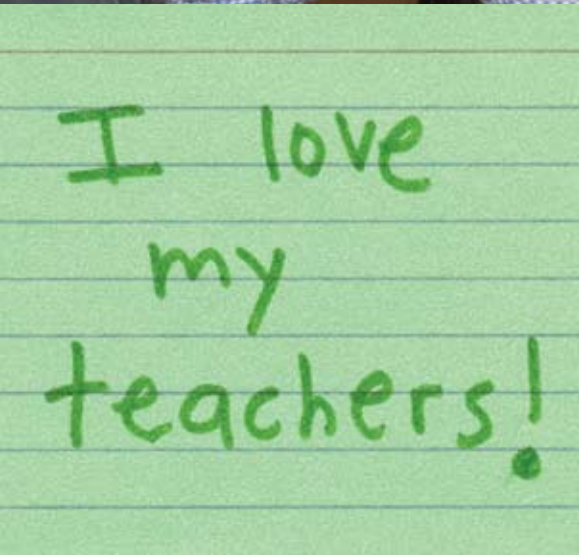 I love
my
teachers!